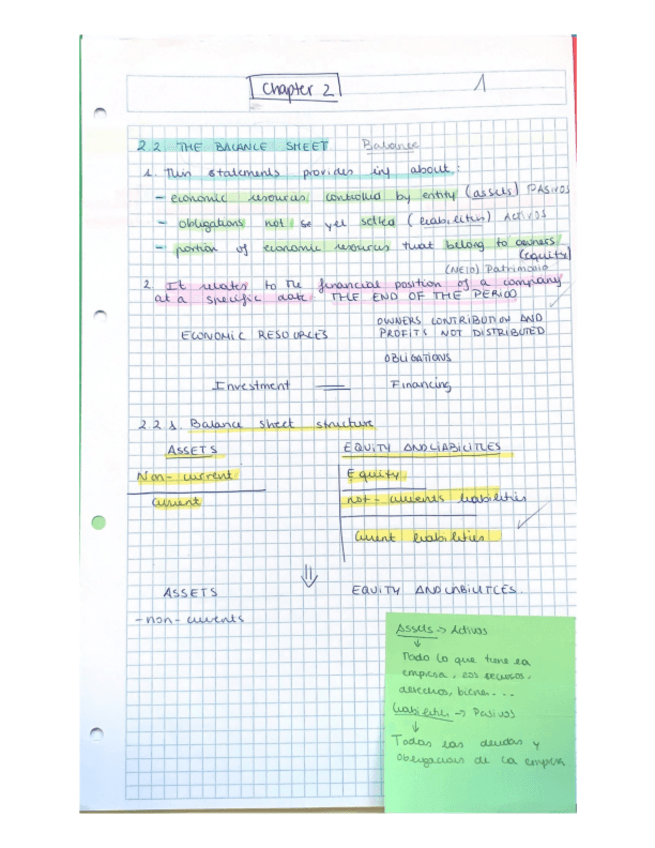 Chapter 2
1
2.2 THE BALANCE SHEET Balance
1. This statements provides inf about:
- economic resources controlled by entity (assets) PASIVOS
- obligations not se yet setled (liabilities) ACTIVOS
- portion of economic resources that belong to owners
(equity)
(NETO) Patrimonio
2. It relates to the financial position of a company
at a specific date. THE END OF THE PERIOD
OWNERS CONTRIBUTION AND
ECONOMIC RESOURCES PROFITS NOT DISTRIBUTED
OBLIGATIONS
Investment = Financing
2.2.1. Balance sheet structure
ASSETS EQUITY AND LIABILITIES
Non-current Equity
Current not-currents liabilities
Current liabilities
ASSETS EQUITY AND LIABILITCES.
- non-currents
Assets -> Activos
Todo lo que tiene la
empresa, sus recursos,
derechos, bienes...
Liabilities -> Pasivos
Todas las deudas y
obligaciones de la empresa